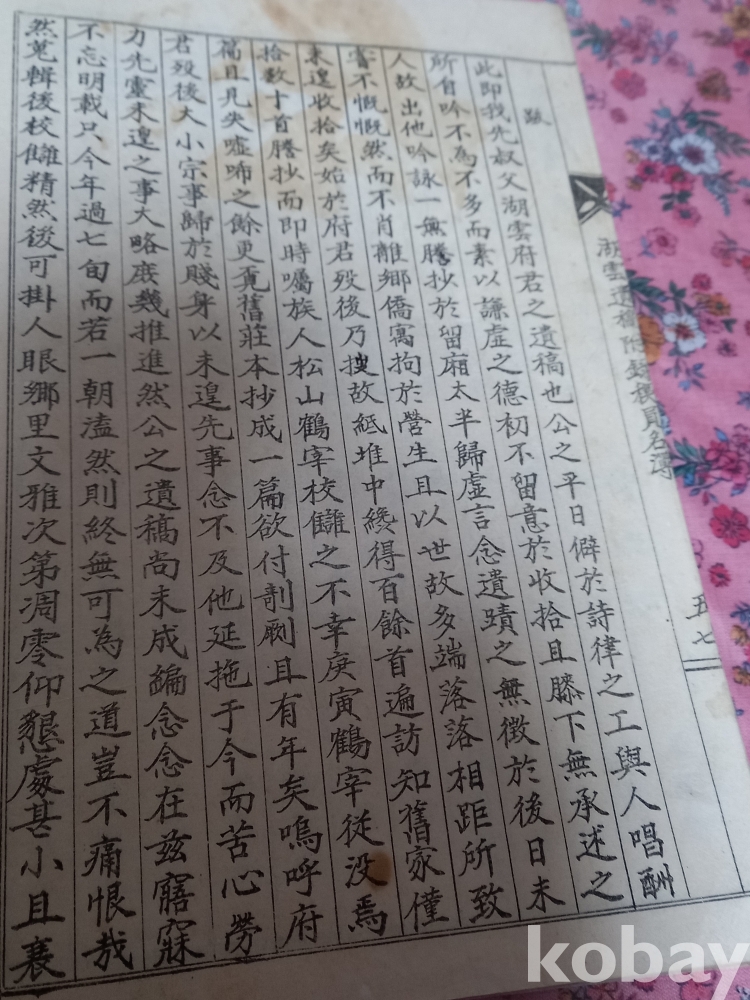 湖雲遺稿附錄校員名
五七
跋
此即我先叔父湖雲府君之遺稿也公之平日僻於詩律之工與人唱酬
所自吟不為不多而素以謙虛之德初不留意於收拾且膝下無承述之
人故出他吟詠一無謄抄於留廂太半歸虛言念遺蹟之無徵於後日未
嘗不慨慨然而不肖離鄉僑寓拘於營生且以世故多端落落相距所致
未遑收拾矣始於府君歿後乃搜故紙堆中纔得百餘首遍訪知舊家僅
拾数十首謄抄而即時囑族人松山鶴宰校讎之不幸庚寅鶴宰従没焉
藁且見失噓唏之餘更覔舊莊本抄成一篇欲付剞劂且有年矣嗚呼府
君歿後大小宗事歸於賤身以未遑先事念不及他延拖于今而苦心勞
力先靈未遑之事大略庶幾推進然公之遺稿尚未成編念念在玆寤寐
不忘明載只今年過七旬而若一朝溘然則終無可為之道豈不痛恨哉
然蒐輯後校讎精然後可掛人眼鄉里文雅次第凋零仰懇處甚小且衰
kobay